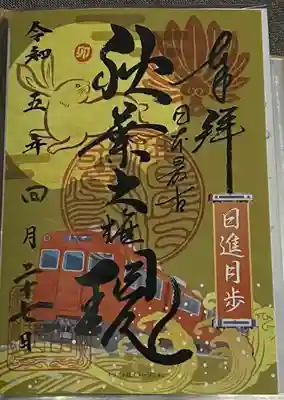 奉拝
日進月歩
日本最古
秋葉大権現
卯
令和五年四月二十七日